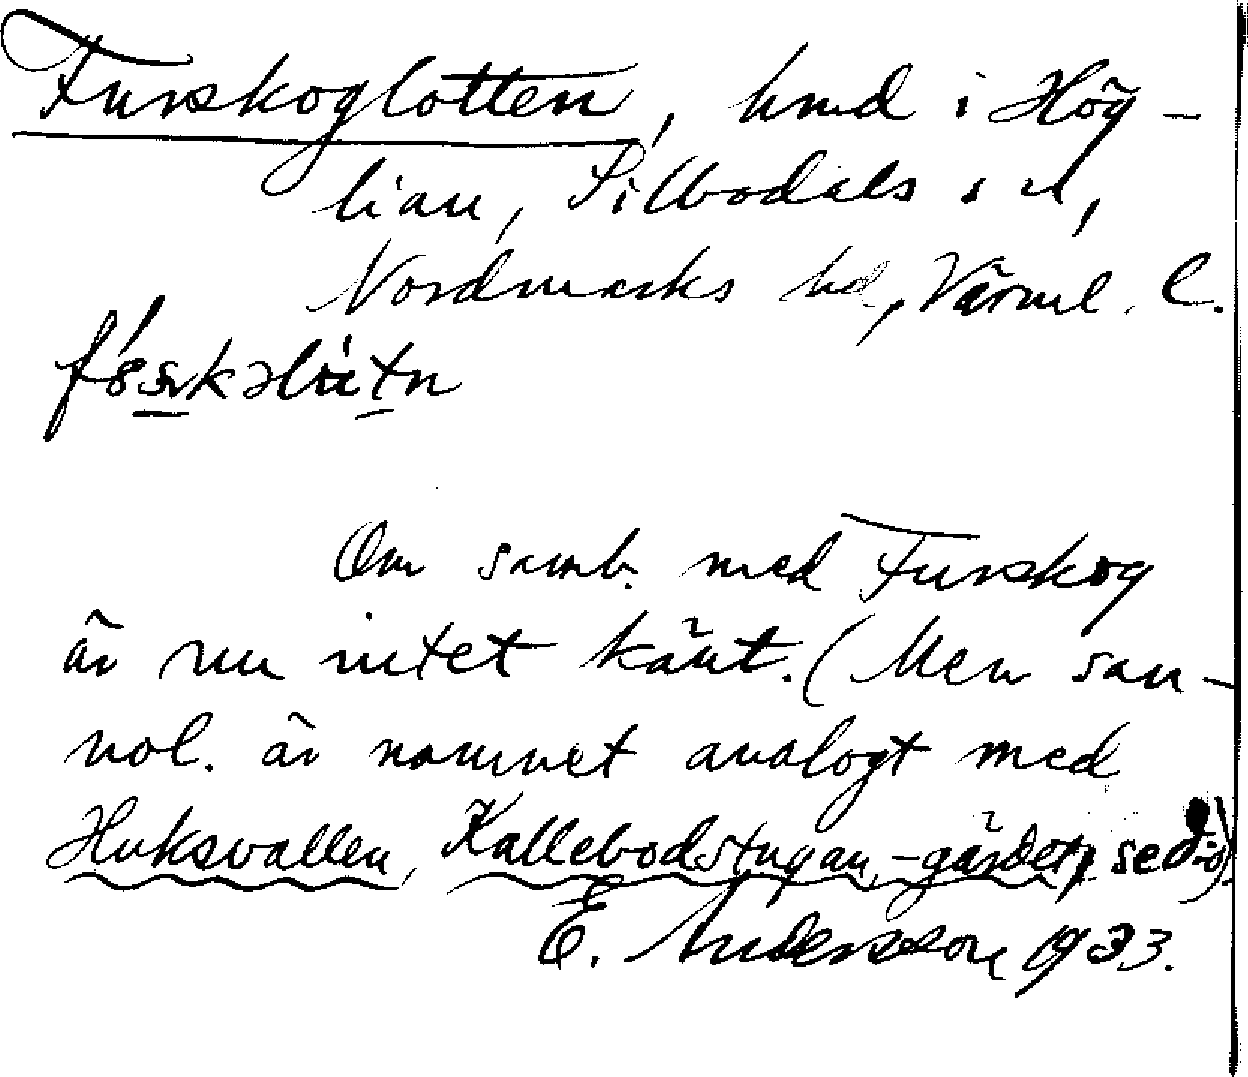 Furskoglotten, hmd i Hög-
lian, Silbodals sn,
Nordmarks hd, Värml. l.
Om samb. med Furskog
är nu intet känt. (Men san-
nol. är namnet analogt med
Huksvallen, Kallebodstugan, -gärdet, se d:o).
E. Andersson 1933.